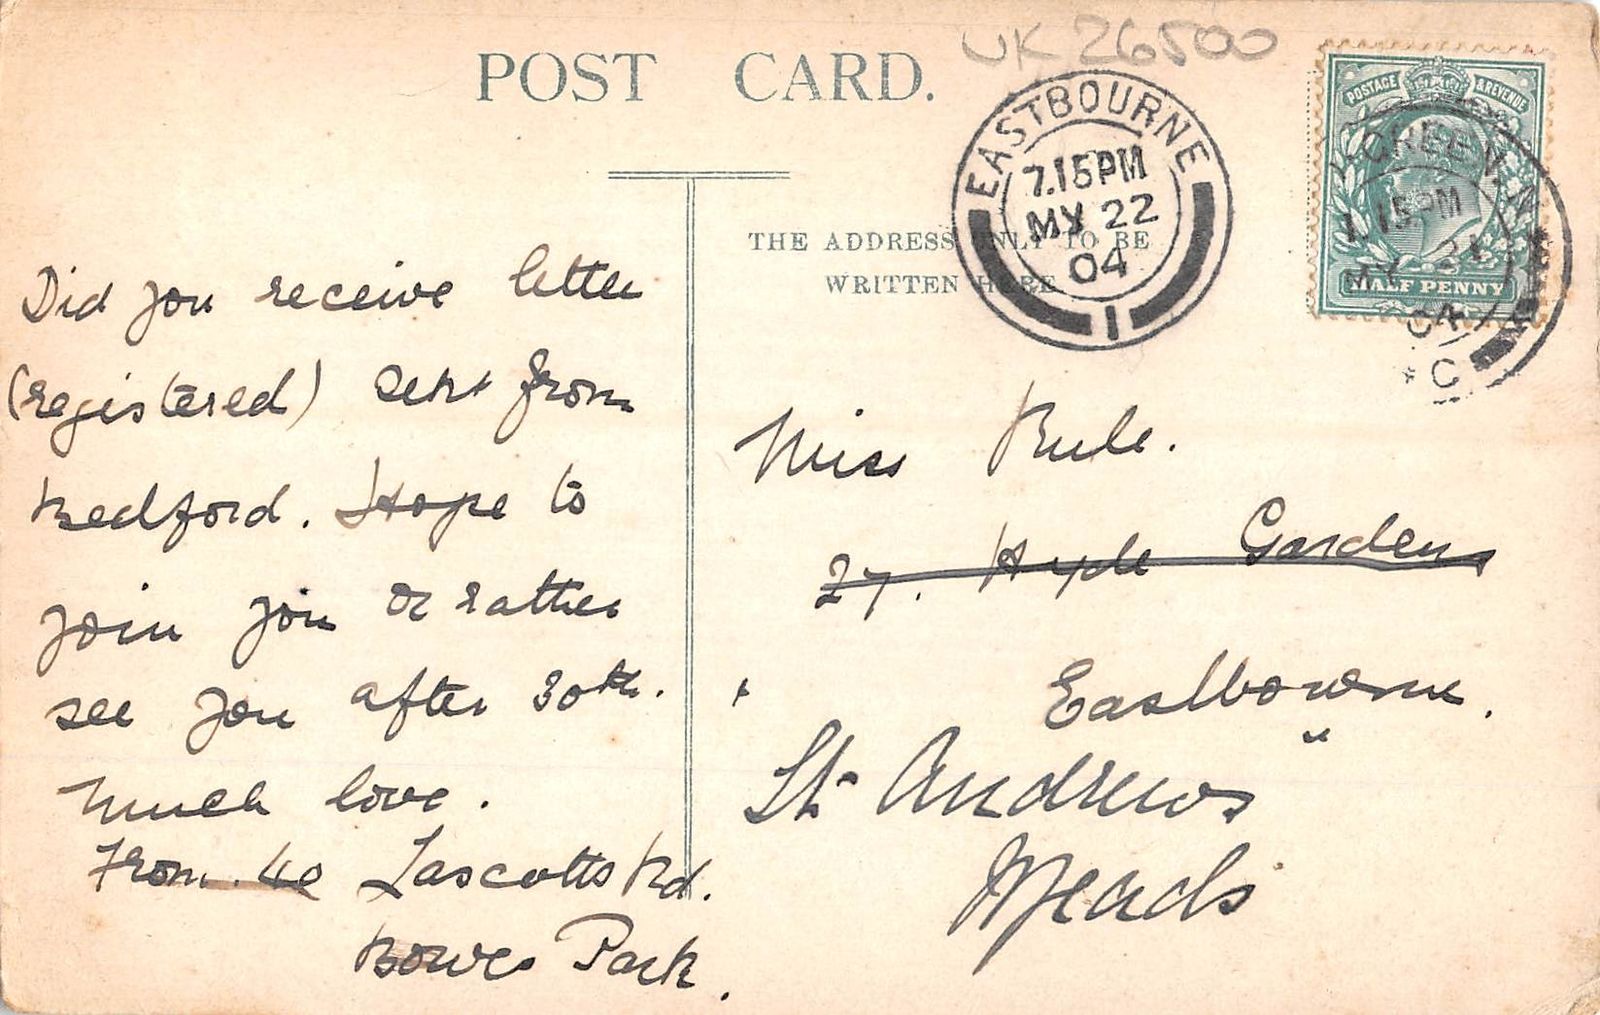 UK 26500
POST CARD.
EASTBOURNE
7.15PM
MY 22
04
1
POSTAGE & REVENUE
HALF PENNY
1.15PM
MY 21
04
C
THE ADDRESS ONLY TO BE
WRITTEN HERE
Did you receive letter
(registered) sent from
Bedford. Hope to
join you or rather
see you after 30th.
Much love.
From 40 Lascotts Rd.
Bowes Park.
Miss Rule.
27. Hyde Gardens
Eastbourne.
St Andrews
Meads